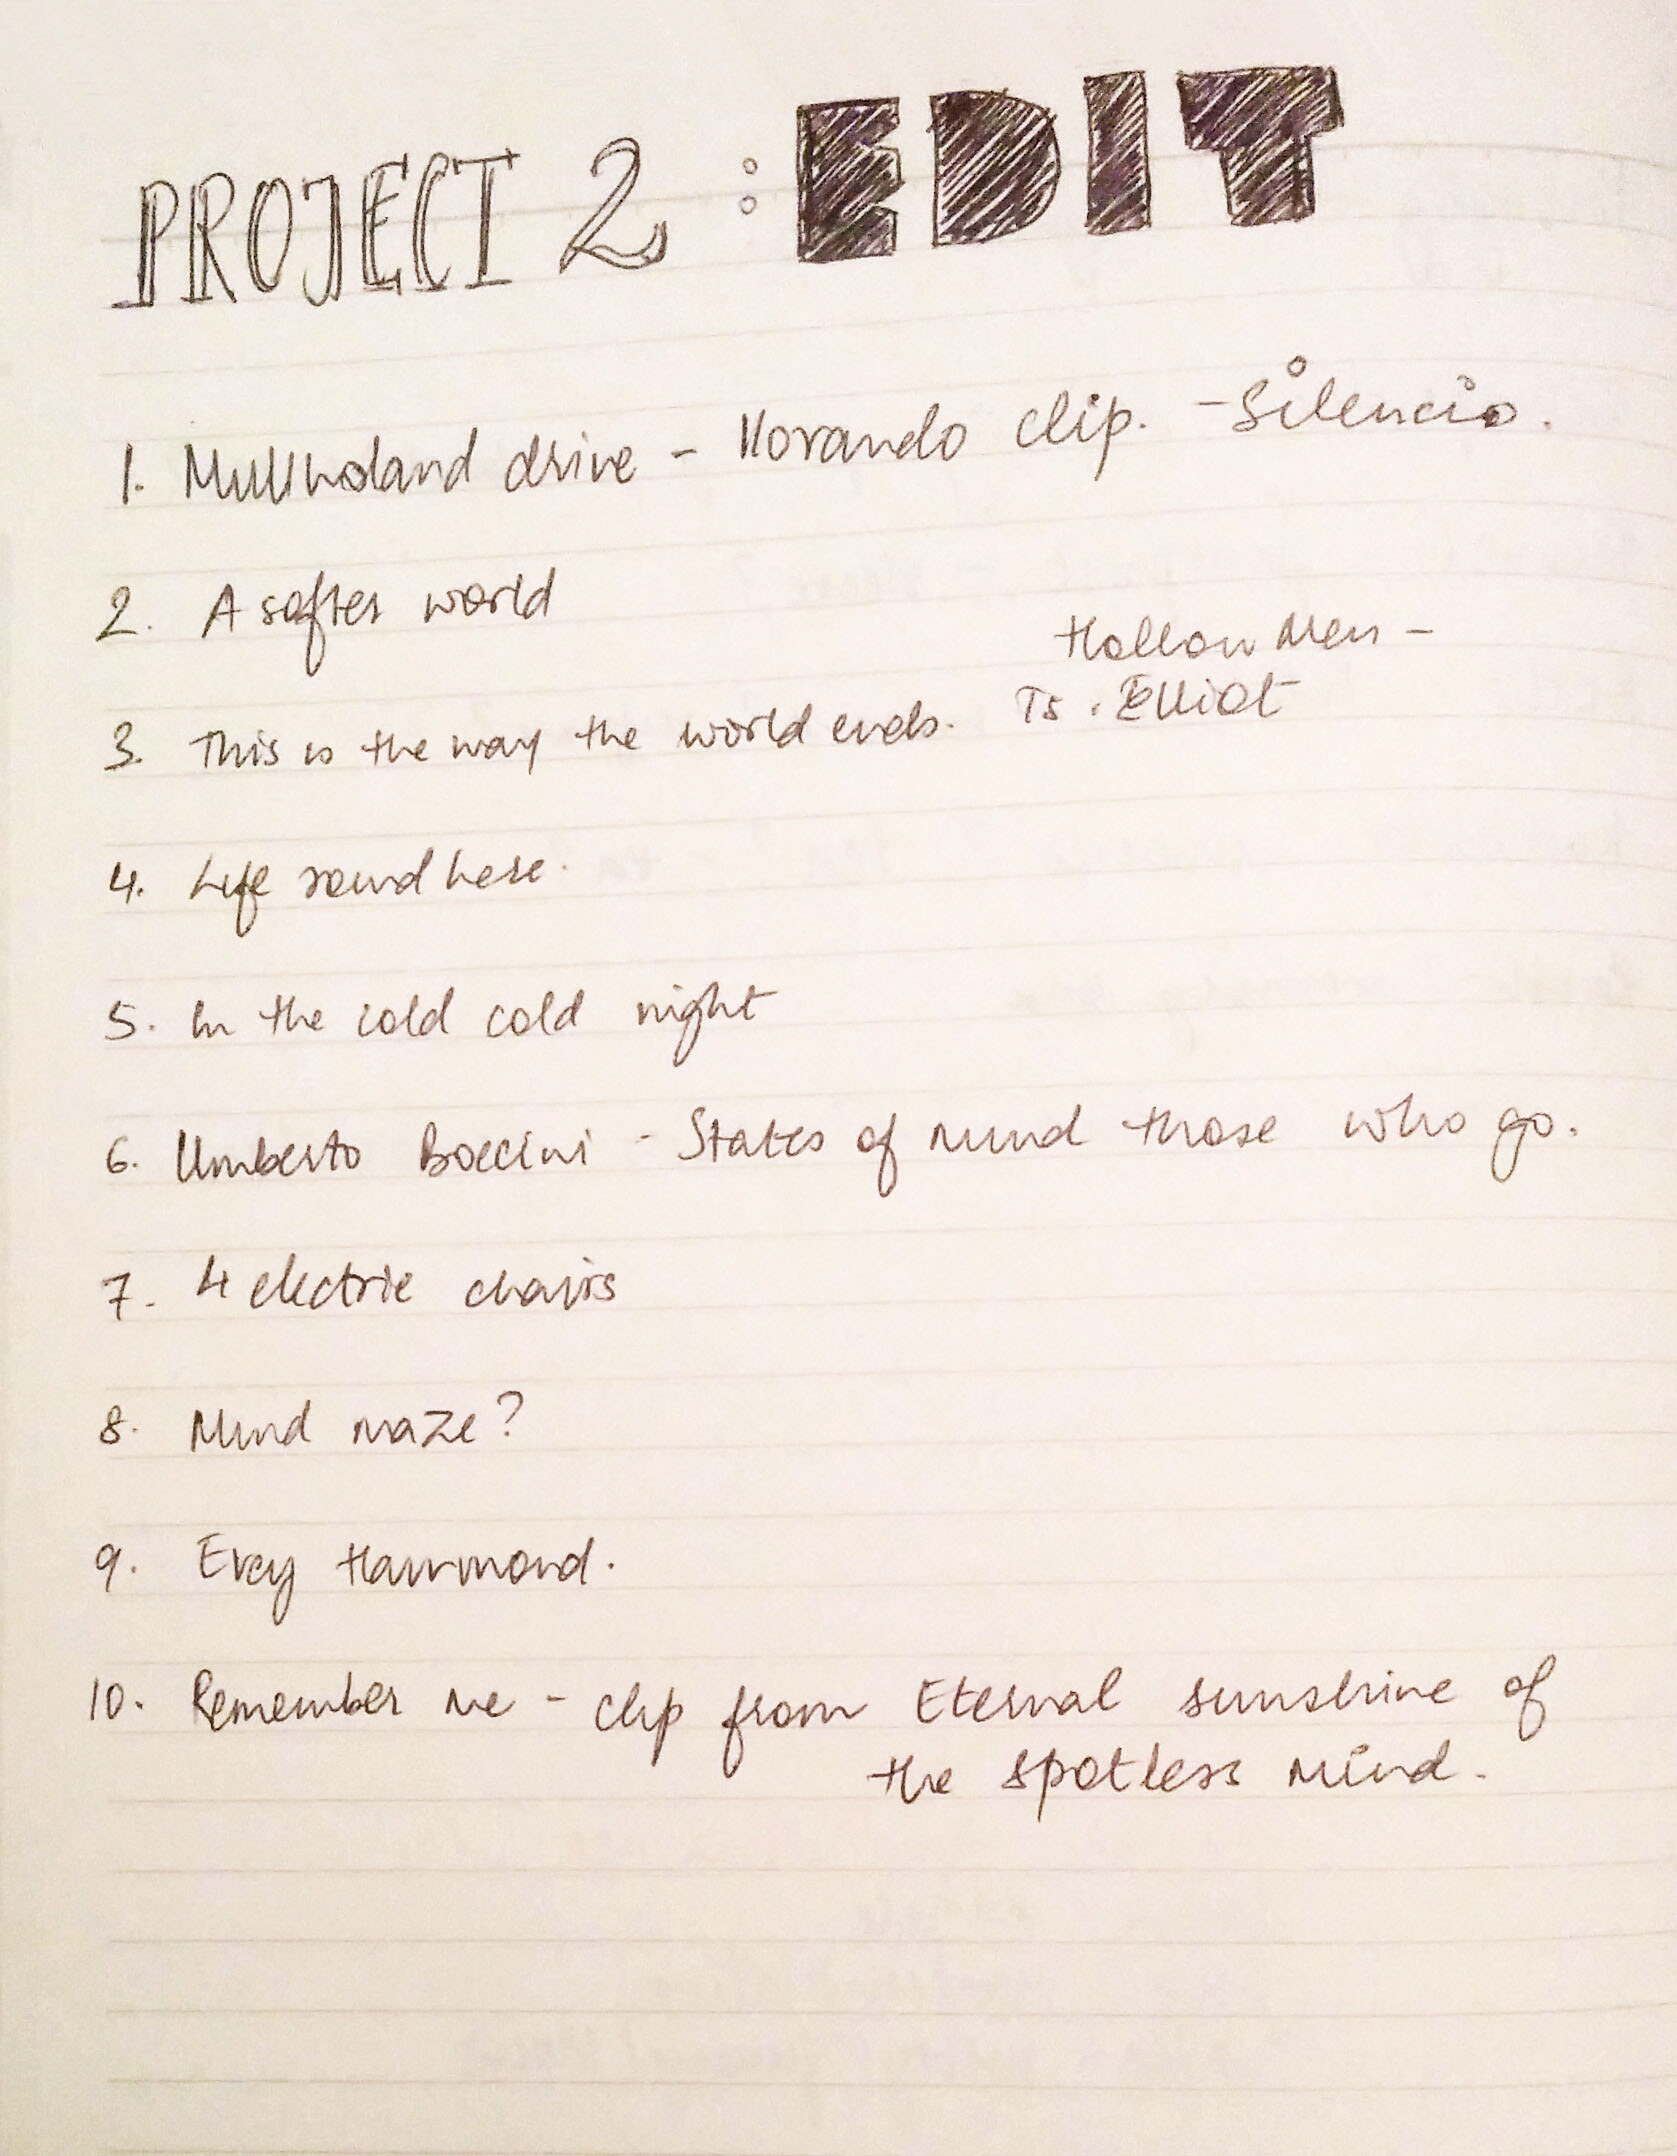 PROJECT 2 : EDIT
1. Mullholand drive - llorando clip. - Silencio.
2. A softer world
Hollow Men -
3. This is the way the world ends. Ts. Elliot
4. Life round here.
5. In the cold cold night
6. Umberto Boccini - States of mind those who go.
7. 4 electric chairs
8. Mind maze?
9. Evey Hammond.
10. Remember me - clip from Eternal sunshine of
the spotless mind.